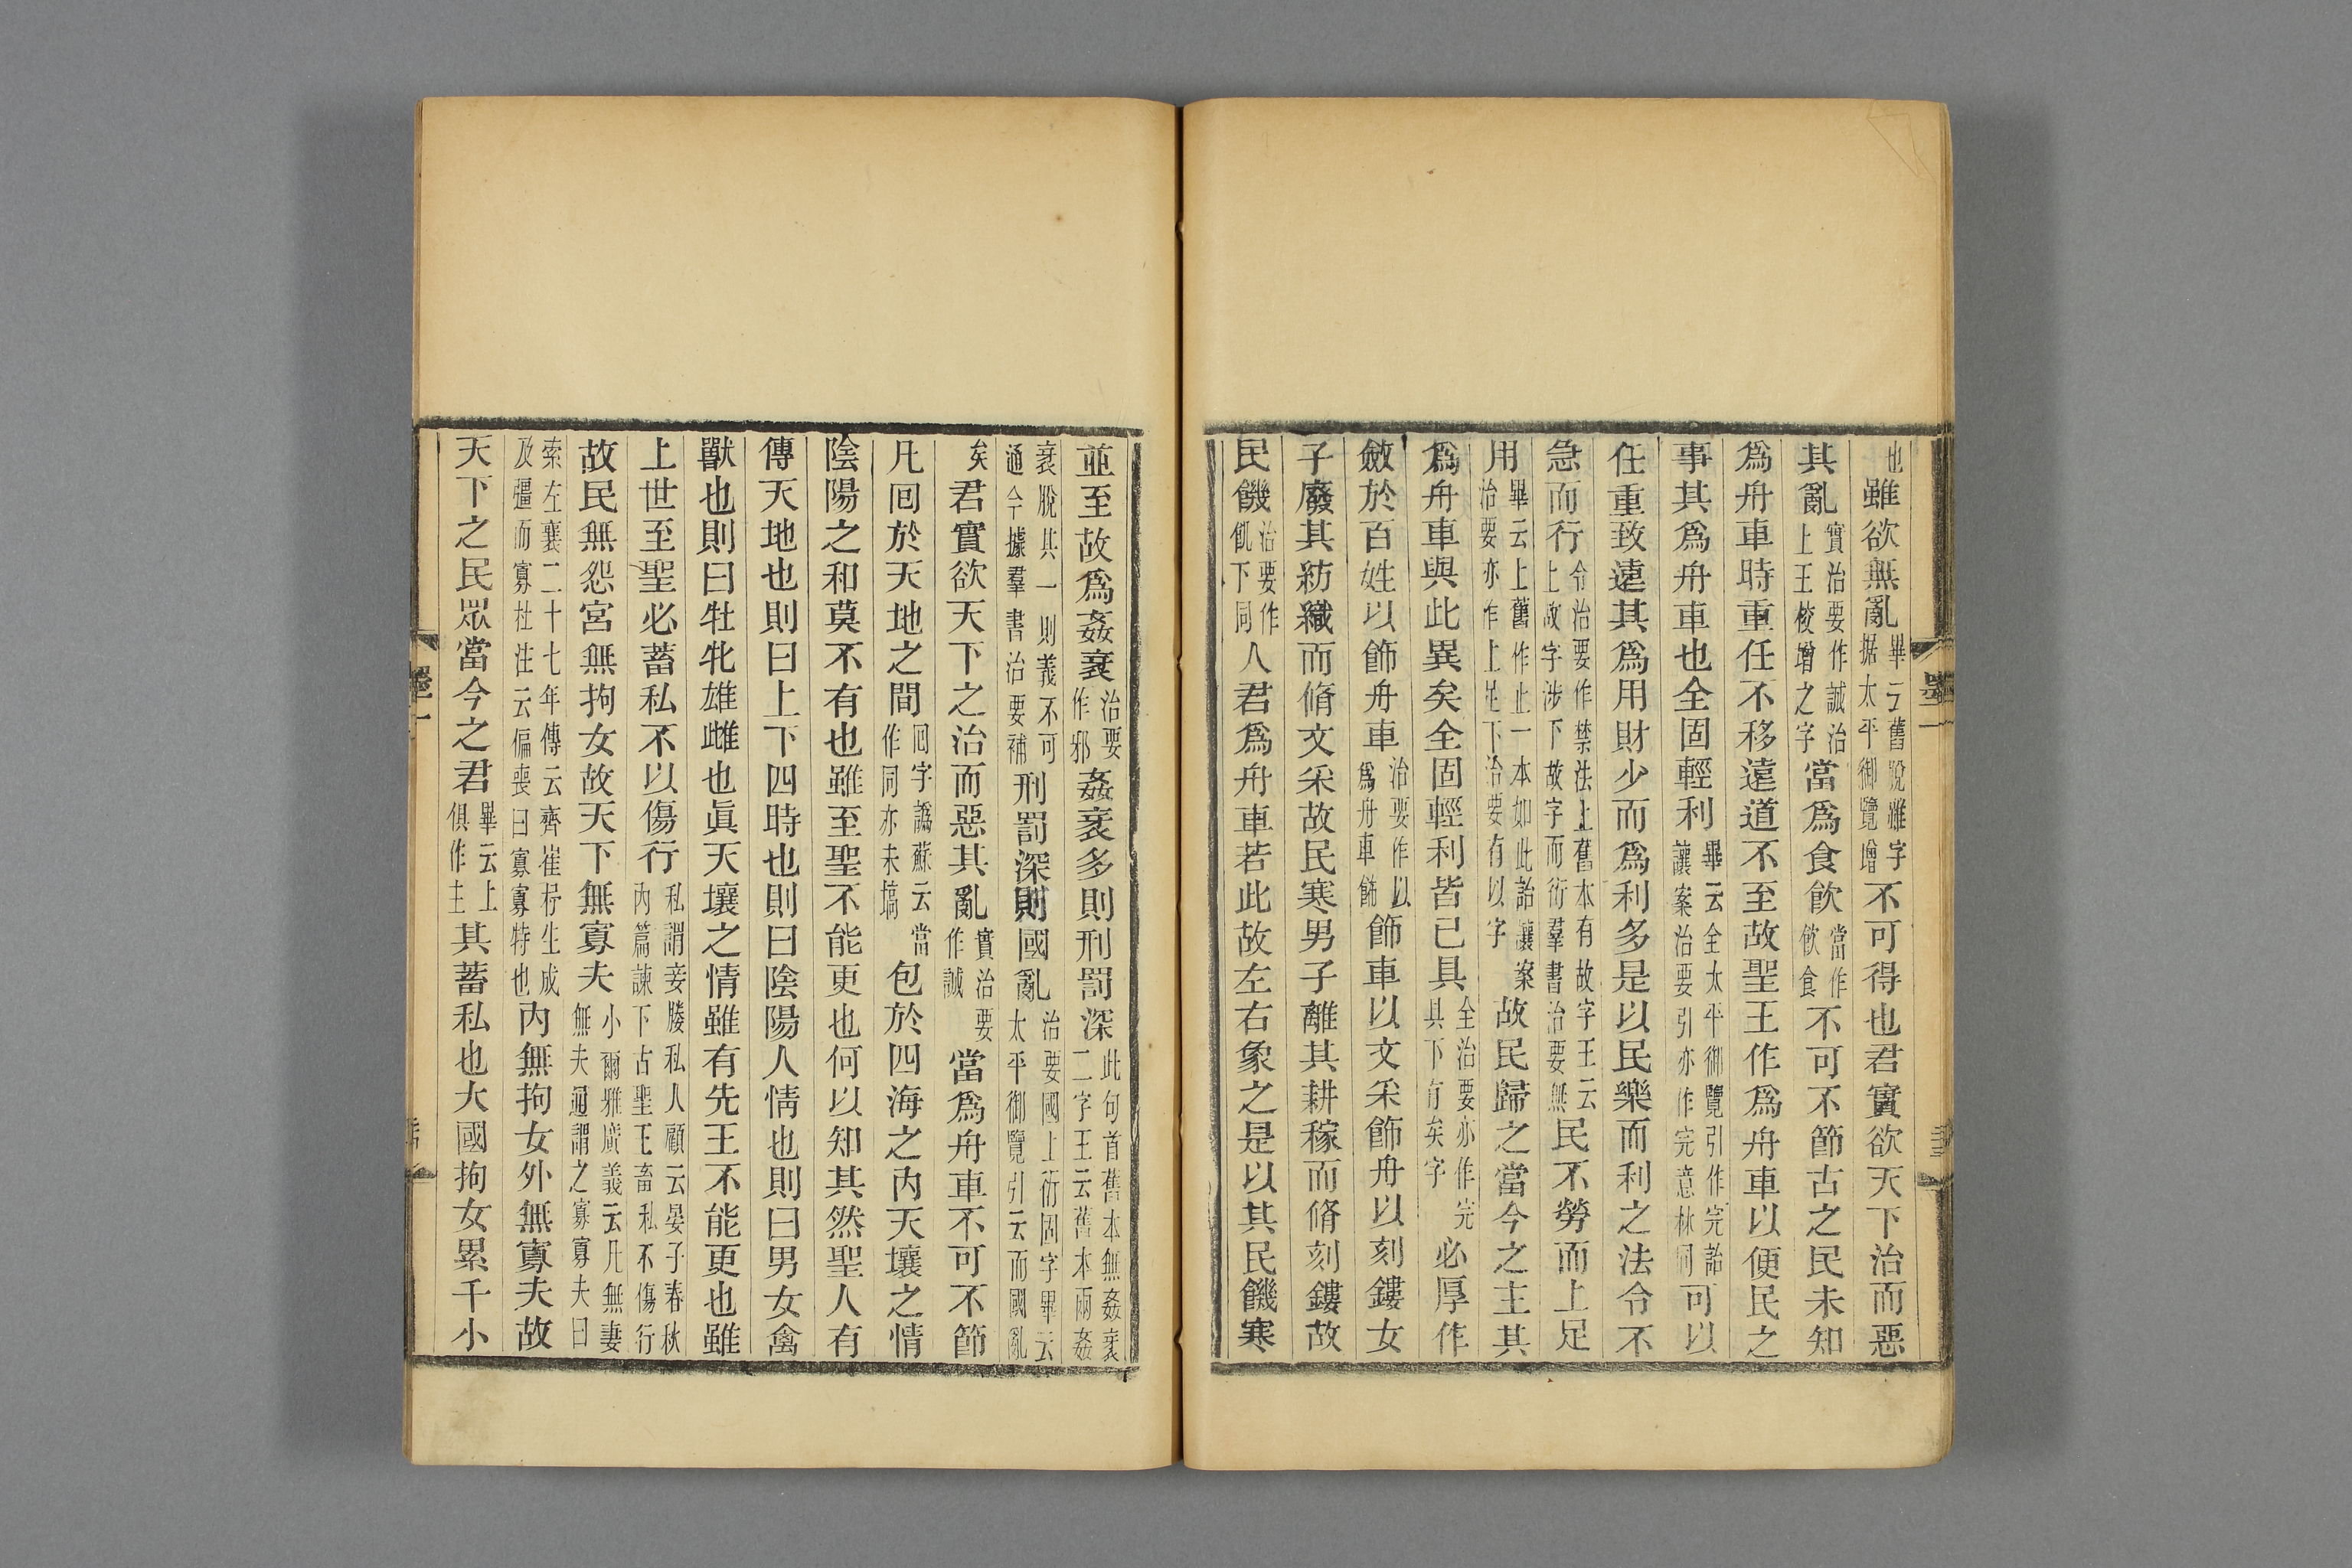 也雖欲無亂畢云舊脫雖字据太平御覽增不可得也君實欲天下治而惡
其亂實治要作誠治上王校增之字當爲食飲當作飲食不可不節古之民未知
爲舟車時重任不移遠道不至故聖王作爲舟車以便民之
事其爲舟車也全固輕利畢云全太平御覽引作完詒讓案治要引亦作完意林同可以
任重致遠其爲用財少而爲利多是以民樂而利之法令不
急而行令治要作禁法上舊本有故字王云上故字涉下故字而衍羣書治要無民不勞而上足
用畢云上舊作止一本如此詒讓案治要亦作上足下治要有以字故民歸之當今之主其
爲舟車與此異矣全固輕利皆已具全治要亦作完具下有矣字必厚作
斂於百姓以飾舟車治要作以爲舟車飾飾車以文采飾舟以刻鏤女
子廢其紡織而脩文采故民寒男子離其耕稼而脩刻鏤故
民饑治要作飢下同人君爲舟車若此故左右象之是以其民饑寒
並至故爲姦衺治要作邪姦衺多則刑罰深此句首舊本無姦衺二字王云舊本兩姦
衺脫其一則義不可通今據羣書治要補刑罰深則國亂治要國上衍固字畢云太平御覽引云而國亂
矣君實欲天下之治而惡其亂實治要作誠當爲舟車不可不節
凡回於天地之間回字譌蘇云當作同亦未塙包於四海之內天壤之情
陰陽之和莫不有也雖至聖不能更也何以知其然聖人有
傳天地也則曰上下四時也則曰陰陽人情也則曰男女禽
獸也則曰牡牝雄雌也眞天壤之情雖有先王不能更也雖
上世至聖必蓄私不以傷行私謂妾媵私人顧云晏子春秋內篇諫下古聖王畜私不傷行
故民無怨宮無拘女故天下無寡夫小爾雅廣義云凡無妻無夫通謂之寡寡夫曰
索左襄二十七年傳云齊崔杼生成及彊而寡杜注云偏喪曰寡寡特也內無拘女外無寡夫故
天下之民眾當今之君畢云上俱作主其蓄私也大國拘女累千小
墨一
墨一